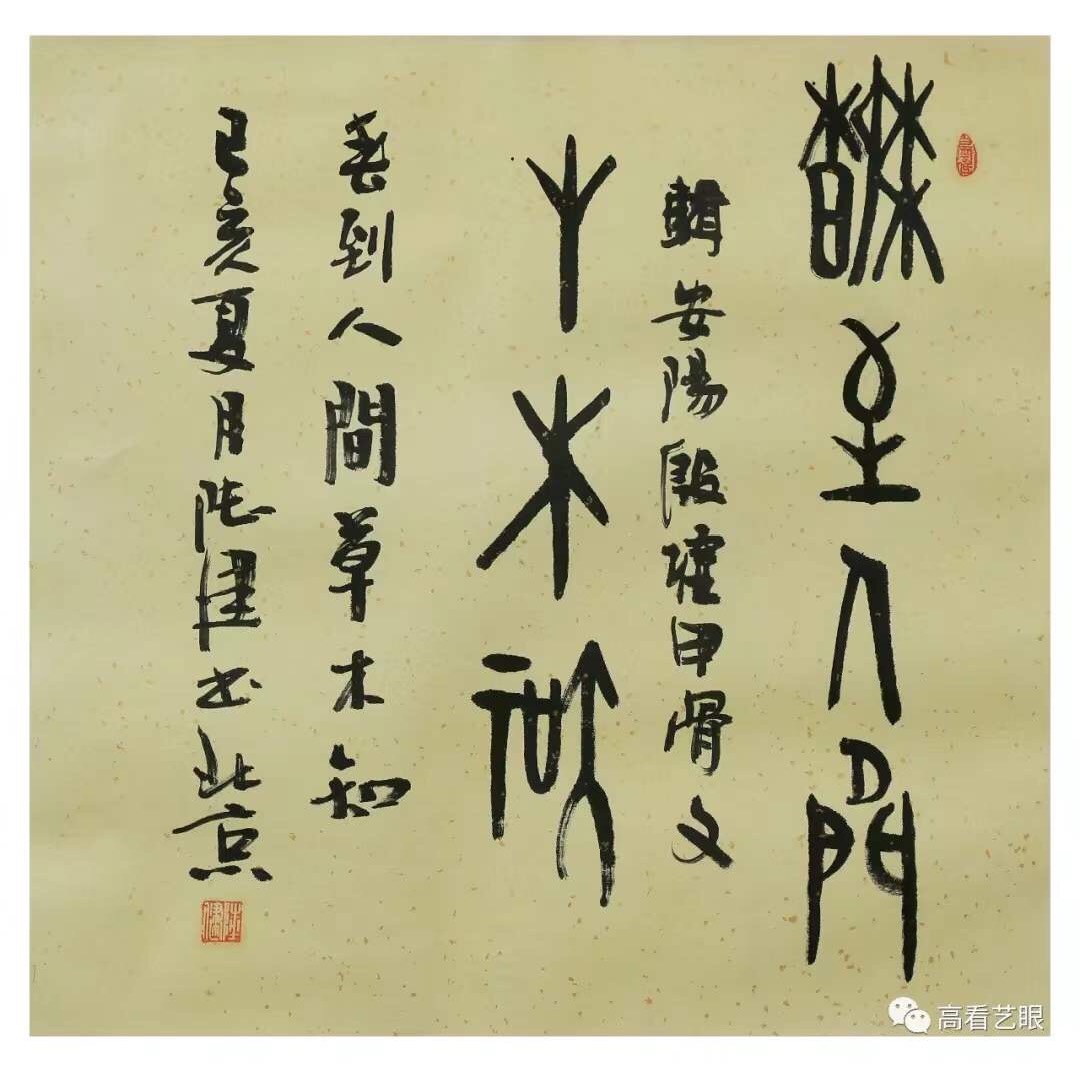 春至人間
輯安陽殷墟甲骨文
草木知
春到人間草木知
己亥夏月陸健书北京
高看艺眼